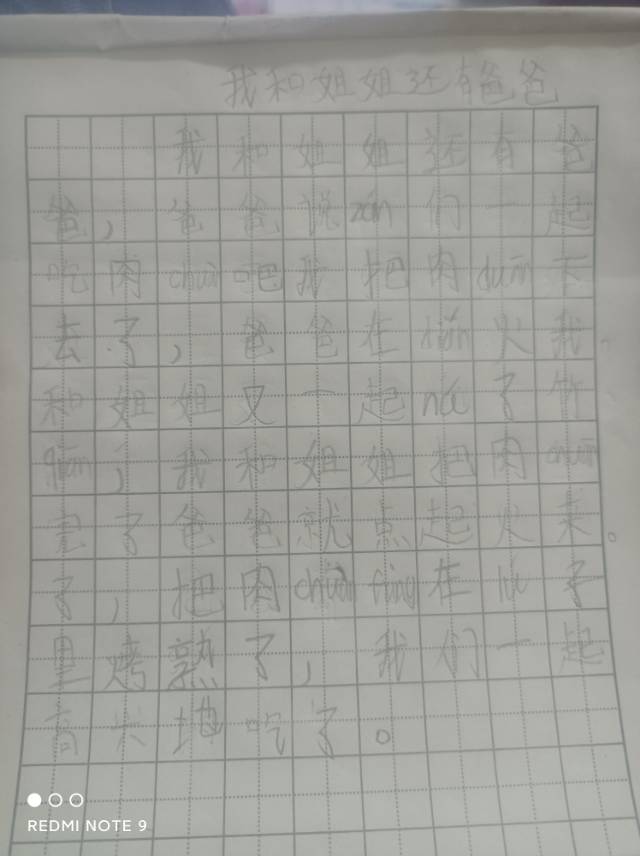 我和姐姐还有爸爸
我和姐姐还有爸
爸，爸爸说zán们一起
吃肉chuàn吧我把肉duān下
去了，爸爸在火我
和姐姐又一起ná了竹
qiān，我和姐姐把肉chuān
完了爸爸就点起火来。
了，把肉chuàn fàng在lú子
里烤熟了，我们一起
高兴地吃了。
REDMI NOTE 9